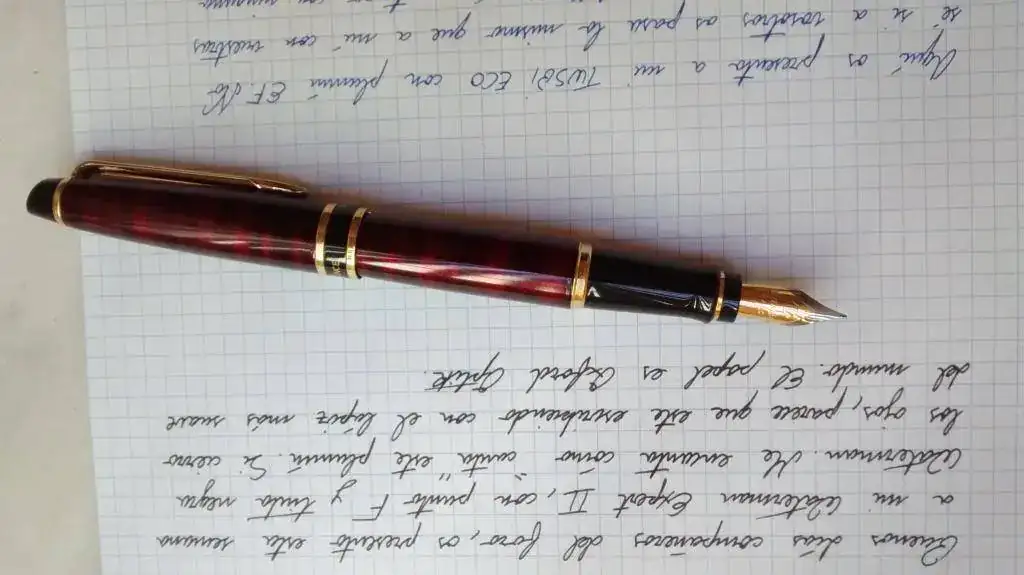 Buenos días compañeros del foro, os presento esta semana
a mi Waterman Expert II, con punto F y tinta negra
Waterman. Me encanta cómo "canta" este plumín. Si cierro
los ojos, parece que este escribiendo con el lápiz más suave
del mundo. El papel es Oxford Optik.
Aquí os presento a mi TWSBI ECO con plumín EF. No
sé si a vosotros os pasa lo mismo que a mí con nuestras